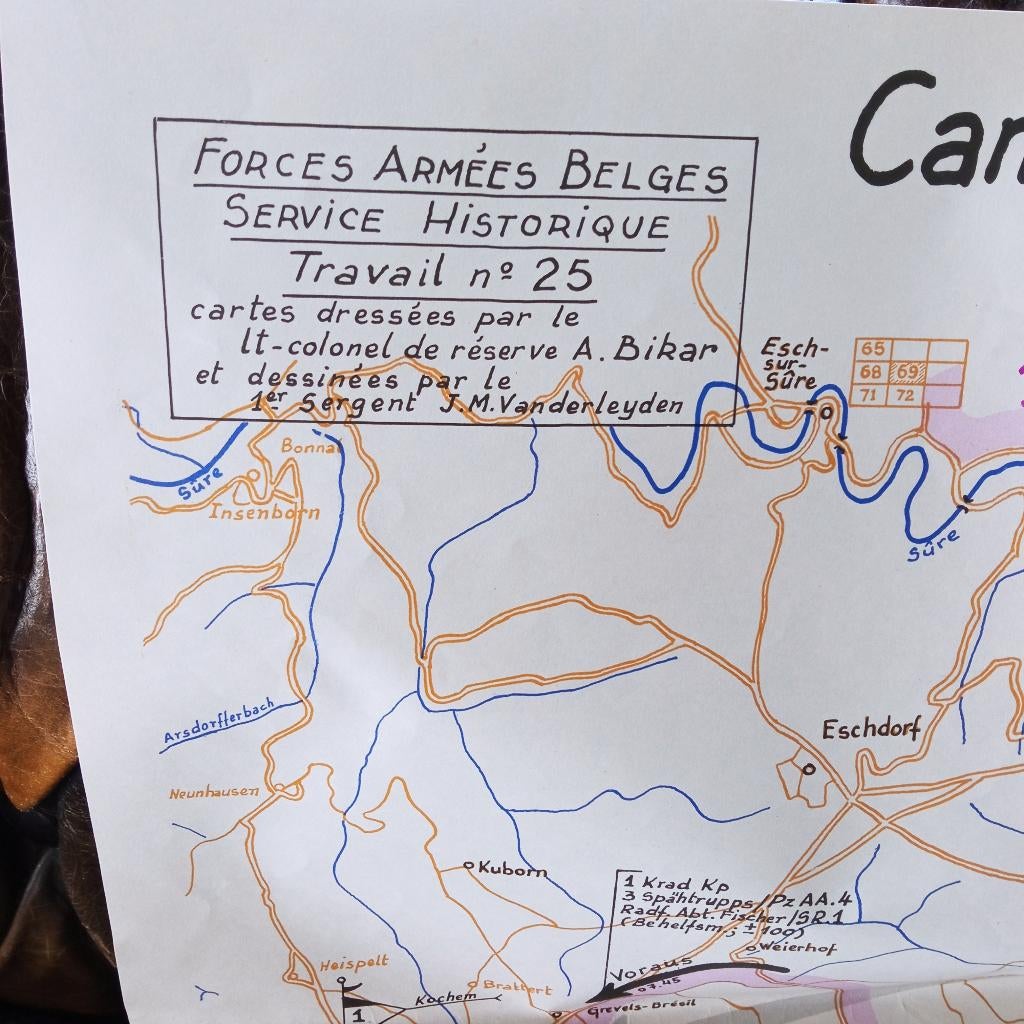 FORCES ARMÉES BELGES
SERVICE HISTORIQUE
Travail nº 25
cartes dressées par le
lt-colonel de réserve A. Bikar
et dessinées par le
1er Sergent J.M. Vanderleyden
Can
Esch-
sur-
Sûre
65
68 69
71 72
Bonnal
Sûre
Insenborn
Sûre
Arsdorfferbach
Eschdorf
Neunhausen
Kuborn
1 Krad Kp
3 Spähtrupps/Pz AA.4
Radf. Abt. Fischer/SR.1
(Behelfsm; ± 100)
Weierhof
Voraus
07.45
Heispelt
Brattert
Kochem
1
Grevels-Brésil